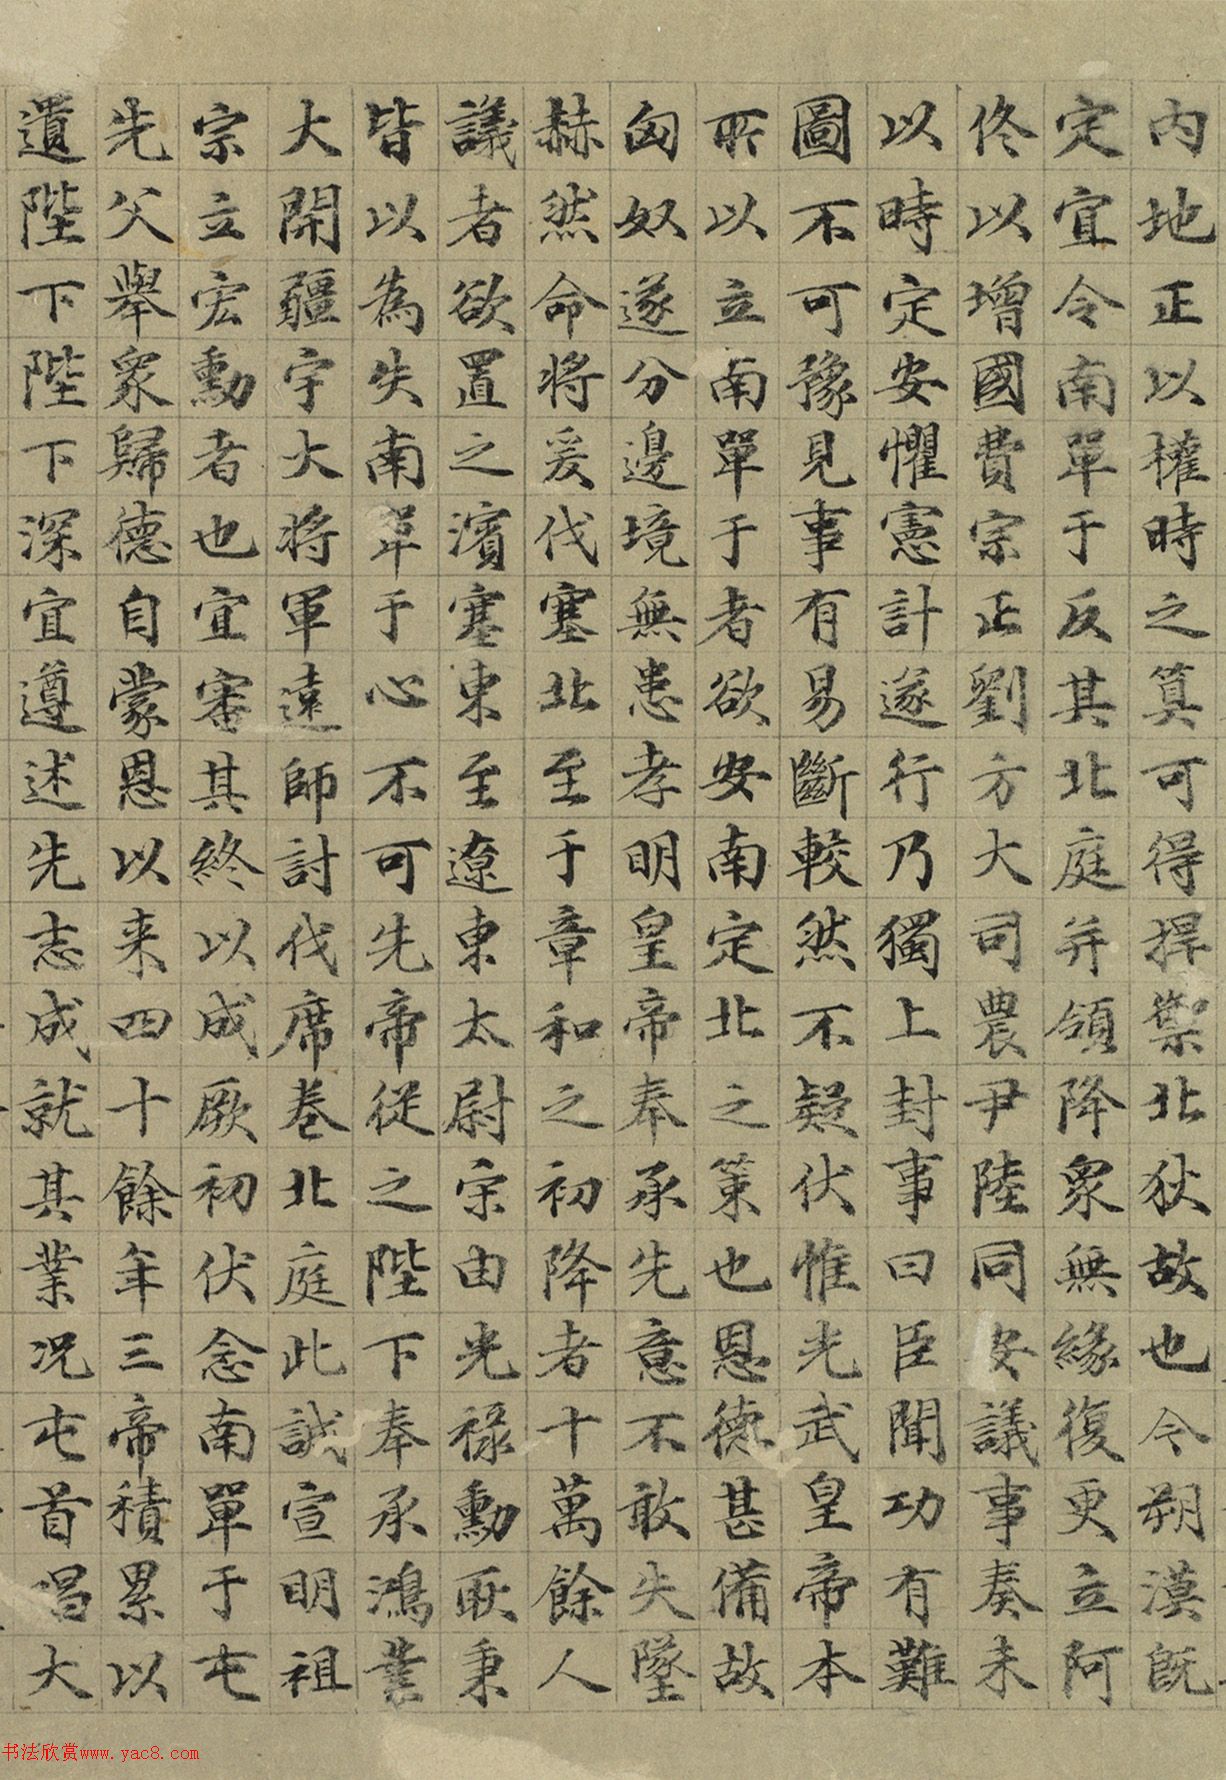 內地正以權時之筭可得捍禦北狄故也今朔漠旣
定宜令南單于反其北庭并領降衆無緣復更立阿
佟以增國費宗正劉方大司農尹陸同安議事奏未
以時定安懼憲計遂行乃獨上封事曰臣聞功有難
圖不可豫見事有易斷較然不疑伏惟光武皇帝本
所以立南單于者欲安南定北之策也恩德甚備故
匈奴遂分邊境無患孝明皇帝奉承先意不敢失墜
赫然命將爰伐塞北至于章和之初降者十萬餘人
議者欲置之濱塞東至遼東太尉宋由光祿勳耿秉
皆以為失南單于心不可先帝從之陛下奉承鴻業
大開疆宇大將軍遠師討伐席卷北庭此誠宣明祖
宗立宏勳者也宜審其終以成厥初伏念南單于屯
先父舉衆歸德自蒙恩以来四十餘年三帝積累以
遺陛下陛下深宜遵述先志成就其業況屯首唱大
书法欣赏www.yac8.com